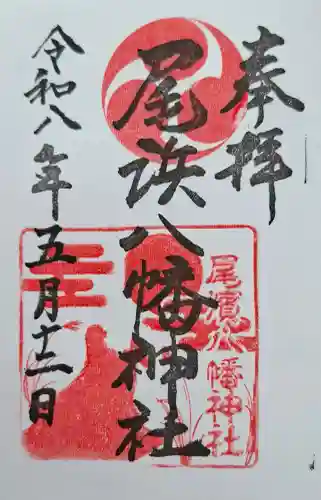 奉拝
尾浜八幡神社
尾濱八幡神社
令和八年五月十二日